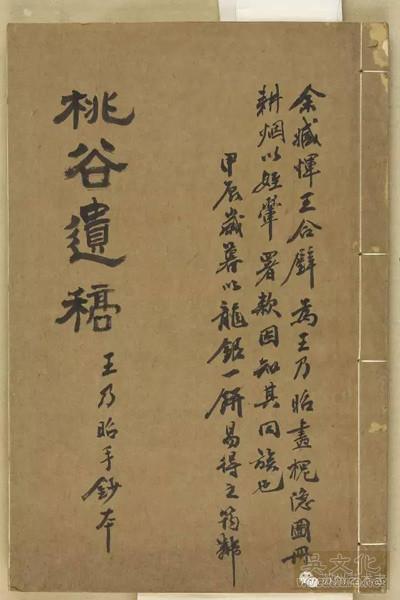 余藏惲王合璧為王乃昭畫槐隱圖冊
耕烟以姪輩署款因知其同族也
甲辰歲暮以龍銀一餅易得之筠
桃谷遺稿
王乃昭手鈔本
吳文化